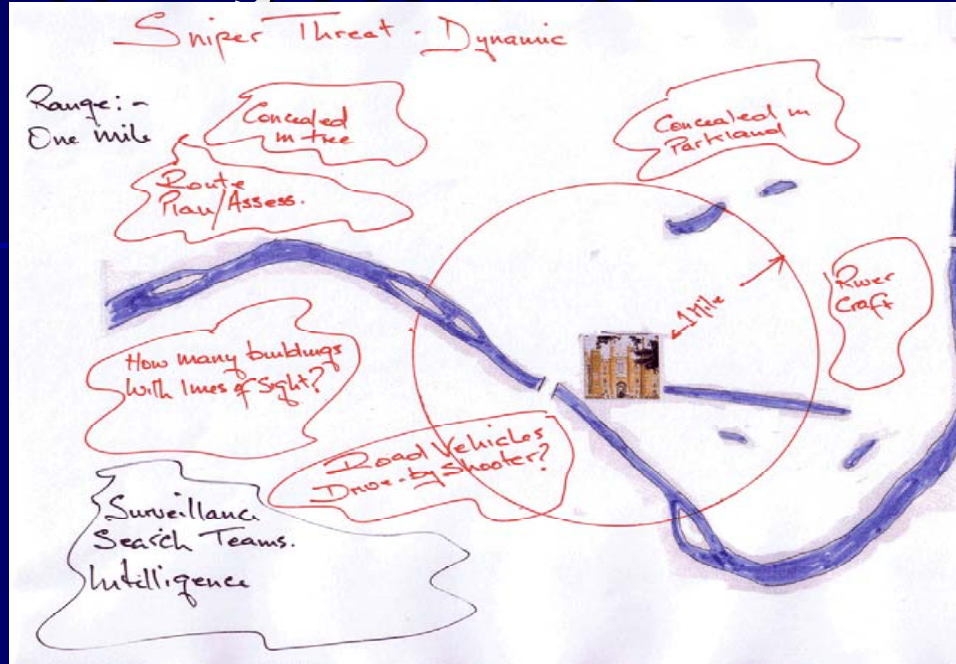 Sniper Threat - Dynamic
Range:-
One mile
Concealed
in tree
Concealed in
Parkland
Route
Plan/Assess.
River
Craft
1 Mile
How many buildings
with lines of Sight?
Road Vehicles
Drive-by Shooter?
Surveillance
Search Teams.
Intelligence